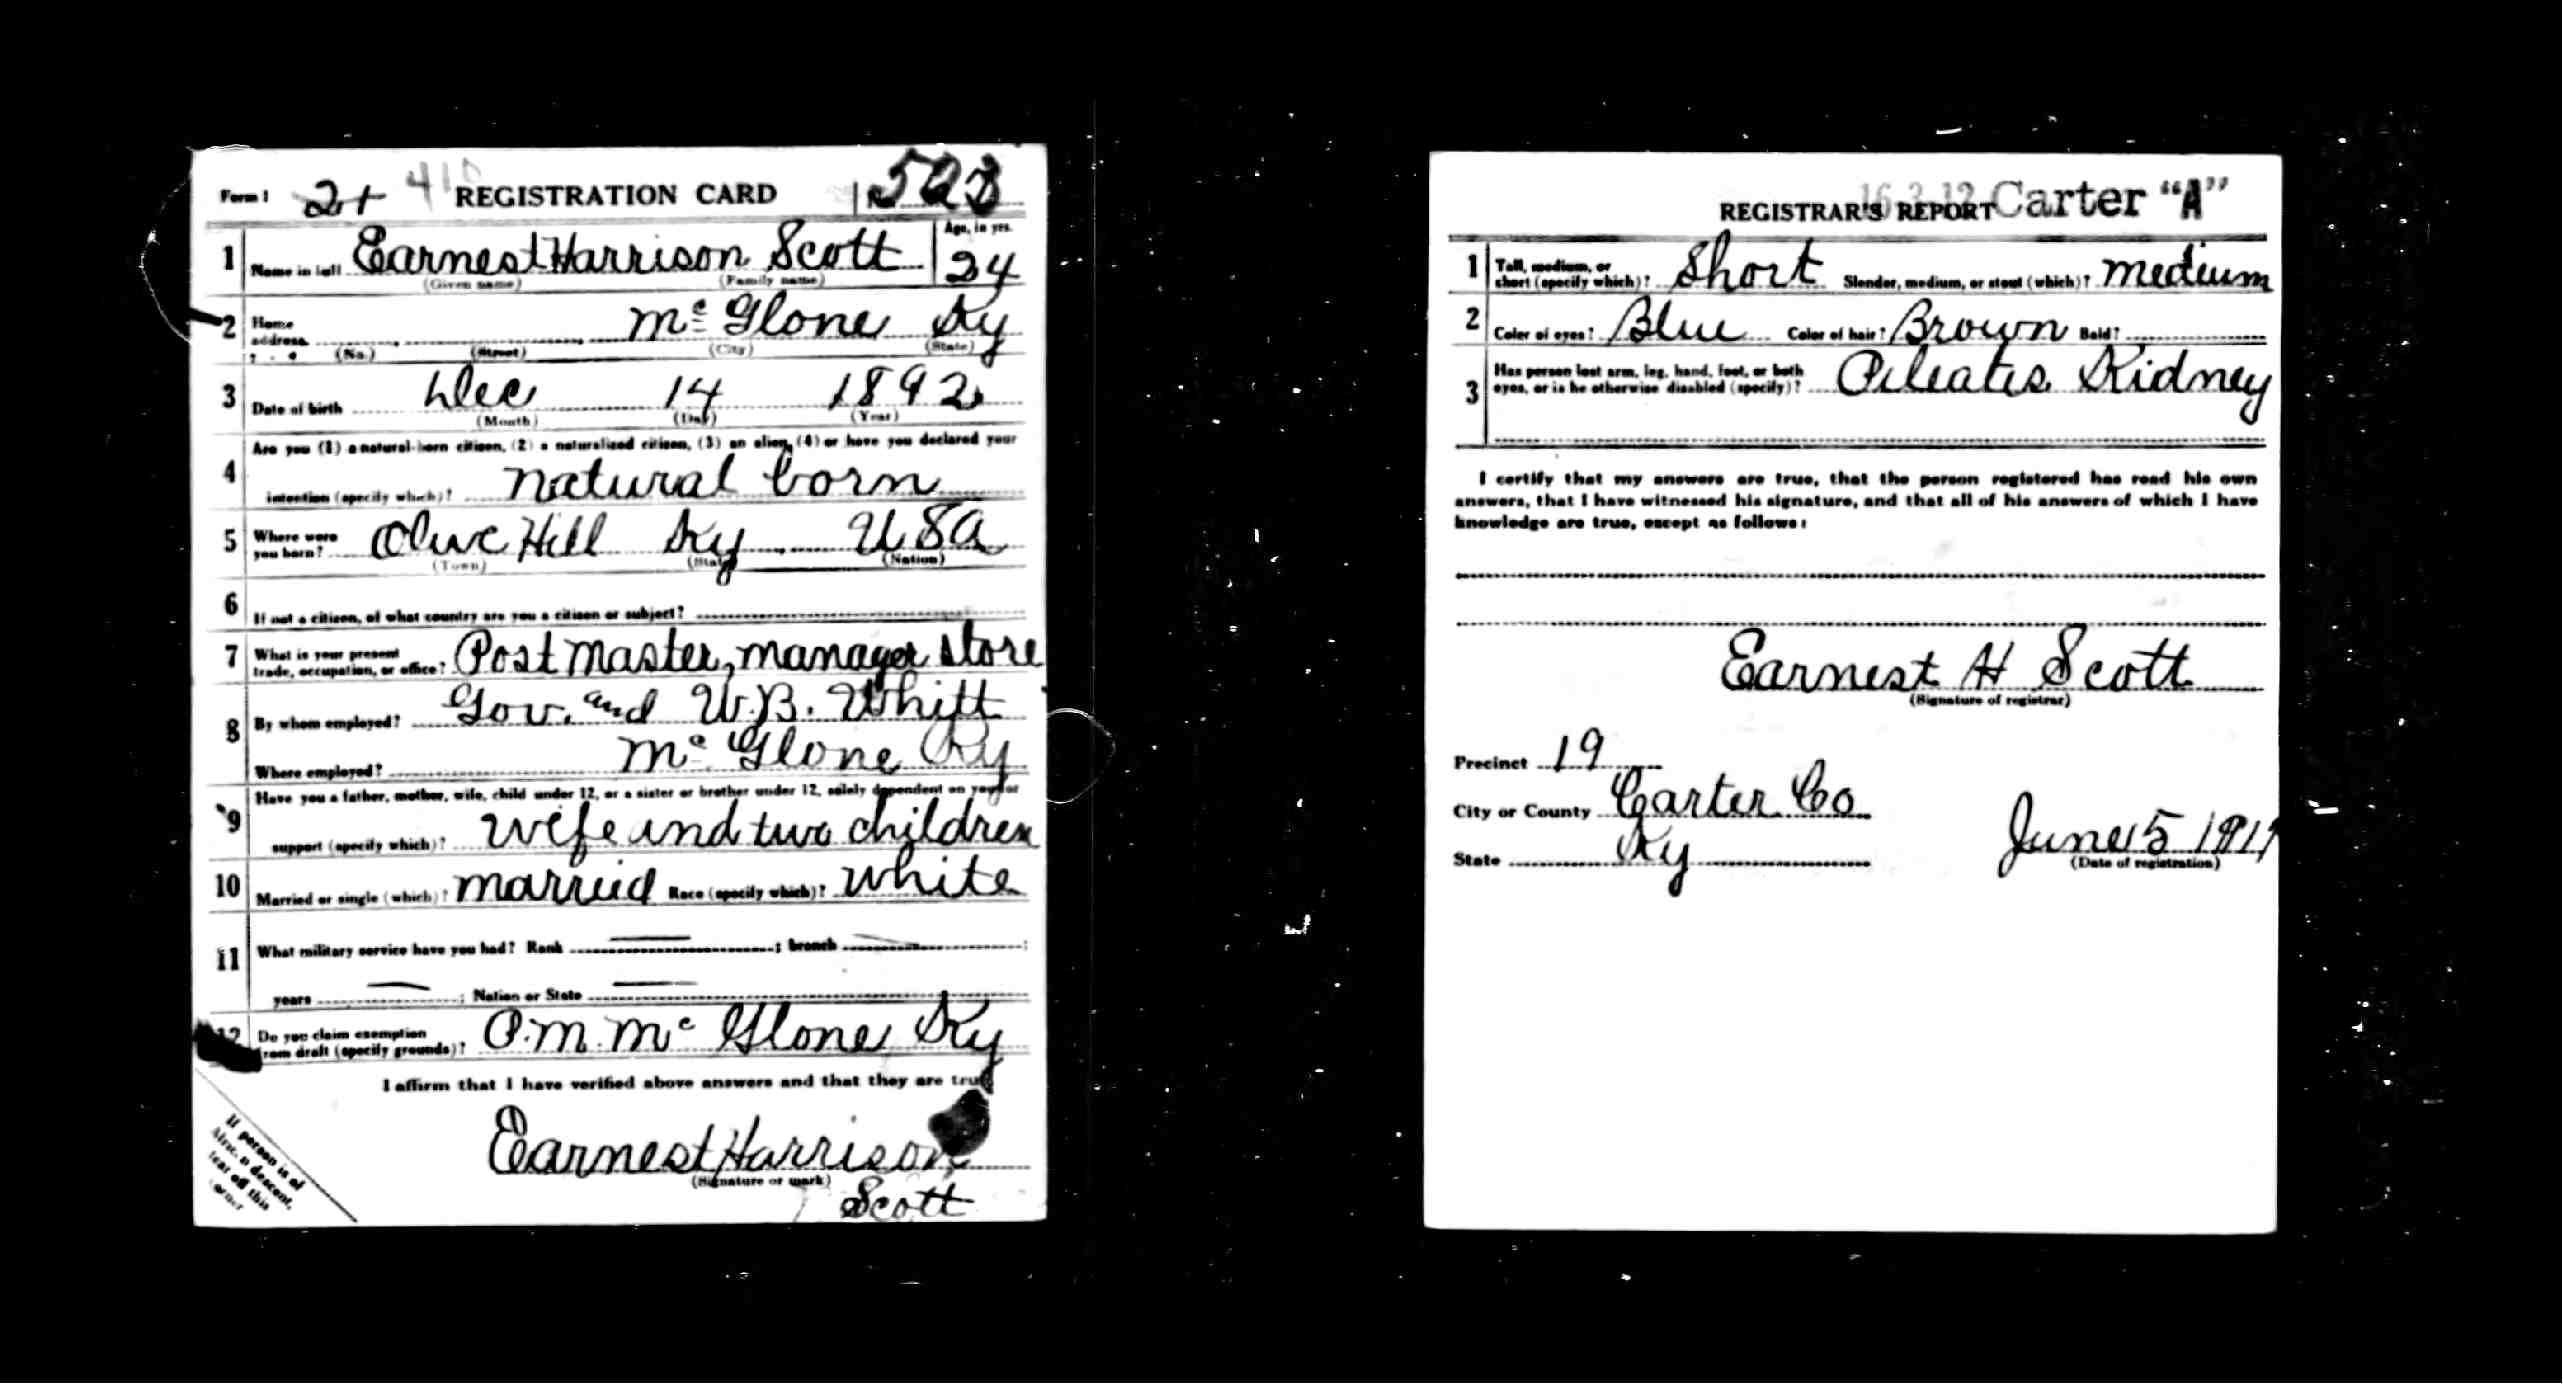 Form 1 2+ 410 REGISTRATION CARD
1 Name in full Earnest Harrison Scott Age, in yrs. 24
(Given name) (Family name)
2 Home address McGlone Ky
(No.) (Street) (City) (State)
3 Date of birth Dec 14 1892
(Month) (Day) (Year)
4 Are you (1) a natural-born citizen, (2) a naturalized citizen, (3) an alien, (4) or have you declared your
intention (specify which)? natural born
5 Where were you born? Olive Hill Ky USA
(Town) (State) (Nation)
6 If not a citizen, of what country are you a citizen or subject?
7 What is your present trade, occupation, or office? Post Master, manager store
8 By whom employed? Gov. and W.B. Whitt
Where employed? McGlone Ky
9 Have you a father, mother, wife, child under 12, or a sister or brother under 12, solely dependent on you for
support (specify which)? wife and two children
10 Married or single (which)? married Race (specify which)? white
11 What military service have you had? Rank ; branch ;
years ; Nation or State
12 Do you claim exemption from draft (specify grounds)? P.M. McGlone Ky
I affirm that I have verified above answers and that they are true
Earnest Harrison
(Signature or mark)
Scott
If person is of
descent,
tear off this
corner
16-3-12 Carter "A"
REGISTRAR'S REPORT
1 Tall, medium, or short (specify which)? Short Slender, medium, or stout (which)? medium
2 Color of eyes? Blue Color of hair? Brown Bald?
3 Has person lost arm, leg, hand, foot, or both eyes, or is he otherwise disabled (specify)? Kidney
I certify that my answers are true, that the person registered has read his own
answers, that I have witnessed his signature, and that all of his answers of which I have
knowledge are true, except as follows:
Earnest H Scott
(Signature of registrar)
Precinct 19
City or County Carter Co
State Ky
June 5 1917
(Date of registration)